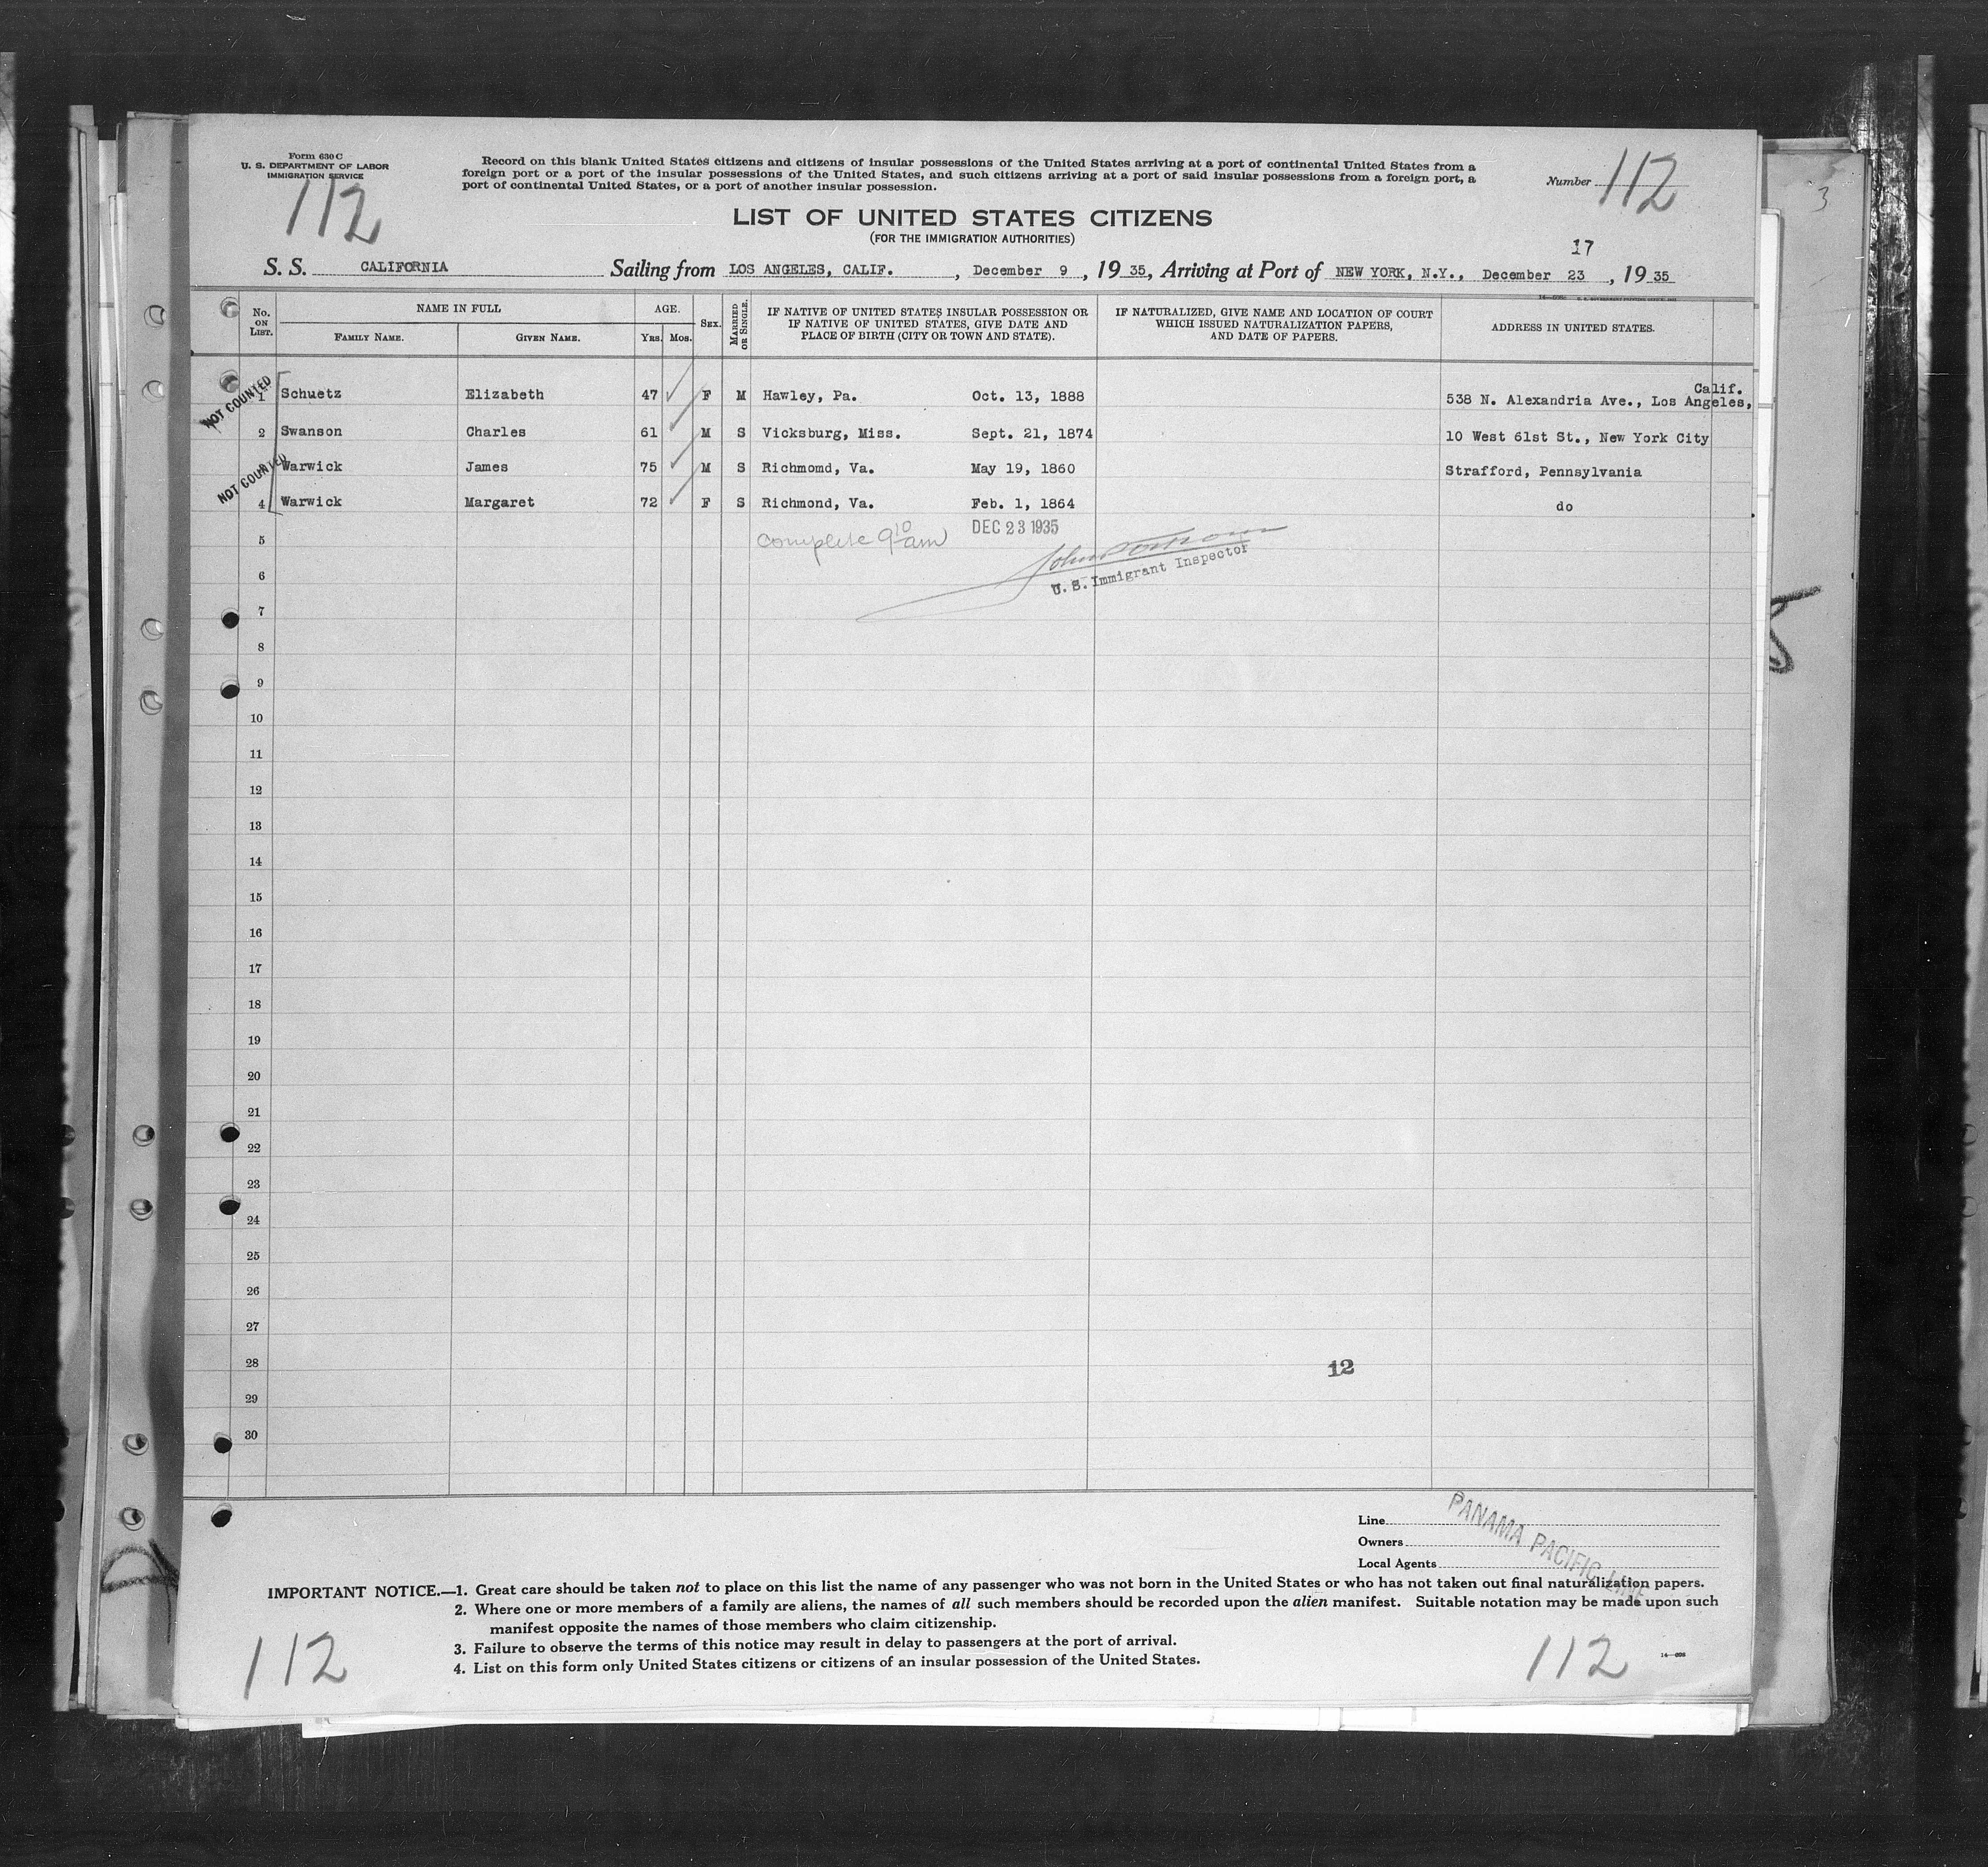 Form 630 C
U. S. DEPARTMENT OF LABOR
IMMIGRATION SERVICE
112
Record on this blank United States citizens and citizens of insular possessions of the United States arriving at a port of continental United States from a
foreign port or a port of the insular possessions of the United States, and such citizens arriving at a port of said insular possessions from a foreign port, a
port of continental United States, or a port of another insular possession.
Number 112
LIST OF UNITED STATES CITIZENS
(FOR THE IMMIGRATION AUTHORITIES)
17
S. S. CALIFORNIA Sailing from LOS ANGELES, CALIF. , December 9 , 19 35, Arriving at Port of NEW YORK, N.Y., December 23 , 19 35
No. ON LIST. NAME IN FULL FAMILY NAME. GIVEN NAME. AGE. YRS. MOS. SEX. MARRIED OR SINGLE. IF NATIVE OF UNITED STATES INSULAR POSSESSION OR IF NATIVE OF UNITED STATES, GIVE DATE AND PLACE OF BIRTH (CITY OR TOWN AND STATE). IF NATURALIZED, GIVE NAME AND LOCATION OF COURT WHICH ISSUED NATURALIZATION PAPERS, AND DATE OF PAPERS. ADDRESS IN UNITED STATES.
NOT COUNTED
Calif.
1 Schuetz Elizabeth 47 F M Hawley, Pa. Oct. 13, 1888 538 N. Alexandria Ave., Los Angeles,
2 Swanson Charles 61 M S Vicksburg, Miss. Sept. 21, 1874 10 West 61st St., New York City
NOT COUNTED
Warwick James 75 M S Richmomd, Va. May 19, 1860 Strafford, Pennsylvania
4 Warwick Margaret 72 F S Richmond, Va. Feb. 1, 1864 do
5 complete 9 10 am DEC 23 1935
U. S. Immigrant Inspector
6
7
8
9
10
11
12
13
14
15
16
17
18
19
20
21
22
23
24
25
26
27
28 12
29
30
Line
Owners
Local Agents
PANAMA PACIFIC LINE
IMPORTANT NOTICE.—1. Great care should be taken not to place on this list the name of any passenger who was not born in the United States or who has not taken out final naturalization papers.
2. Where one or more members of a family are aliens, the names of all such members should be recorded upon the alien manifest. Suitable notation may be made upon such
manifest opposite the names of those members who claim citizenship.
3. Failure to observe the terms of this notice may result in delay to passengers at the port of arrival.
4. List on this form only United States citizens or citizens of an insular possession of the United States.
112
112